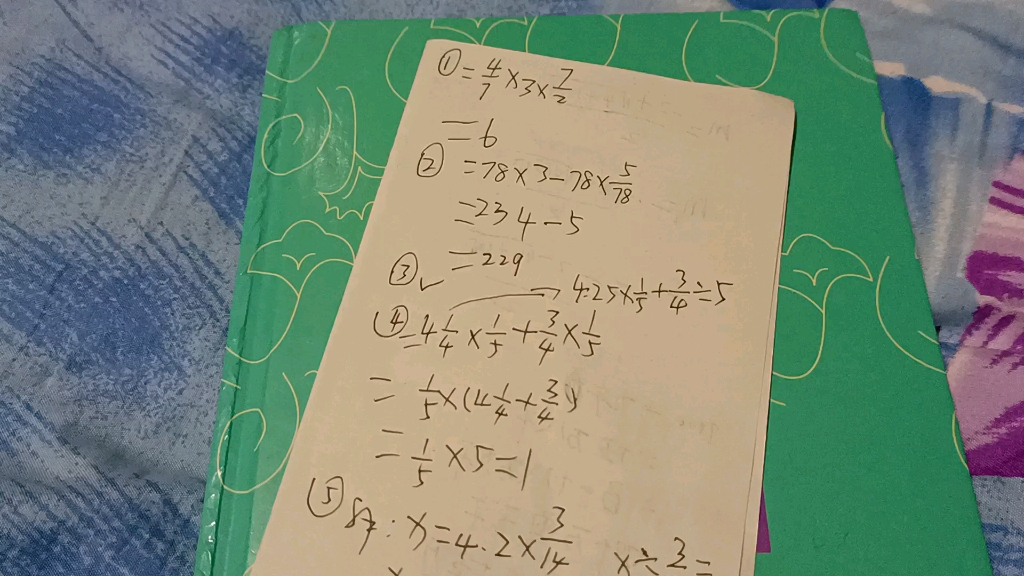 ① = 4/7 × 3 × 7/2
= 6
② = 78 × 3 - 78 × 5/78
= 234 - 5
= 229
③ ✓
→ 4.25 × 1/5 + 3/4 ÷ 5
④ = 4 1/4 × 1/5 + 3/4 × 1/5
= 1/5 × (4 1/4 + 3/4)
= 1/5 × 5 = 1
⑤ 解: x = 4.2 × 3/14 x ÷